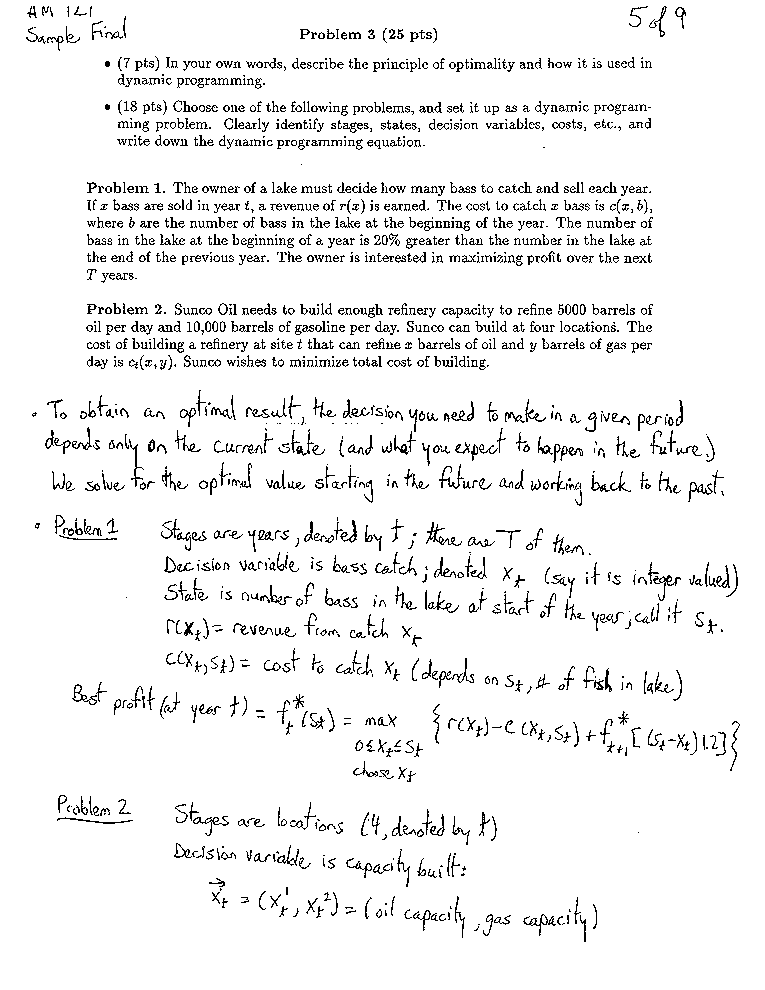 AM 121
Sample Final
5 of 9
Problem 3 (25 pts)
• (7 pts) In your own words, describe the principle of optimality and how it is used in
dynamic programming.
• (18 pts) Choose one of the following problems, and set it up as a dynamic program-
ming problem. Clearly identify stages, states, decision variables, costs, etc., and
write down the dynamic programming equation.
Problem 1. The owner of a lake must decide how many bass to catch and sell each year.
If x bass are sold in year t, a revenue of r(x) is earned. The cost to catch x bass is c(x, b),
where b are the number of bass in the lake at the beginning of the year. The number of
bass in the lake at the beginning of a year is 20% greater than the number in the lake at
the end of the previous year. The owner is interested in maximizing profit over the next
T years.
Problem 2. Sunco Oil needs to build enough refinery capacity to refine 5000 barrels of
oil per day and 10,000 barrels of gasoline per day. Sunco can build at four locations. The
cost of building a refinery at site t that can refine x barrels of oil and y barrels of gas per
day is cₜ(x, y). Sunco wishes to minimize total cost of building.
• To obtain an optimal result, the decision you need to make in a given period
depends only on the current state (and what you expect to happen in the future.)
We solve for the optimal value starting in the future and working back to the past.
• Problem 1 Stages are years, denoted by t; there are T of them.
Decision variable is bass catch; denoted Xₜ (say it is integer valued)
State is number of bass in the lake at start of the year; call it Sₜ.
r(Xₜ) = revenue from catch Xₜ
C(Xₜ, Sₜ) = cost to catch Xₜ (depends on Sₜ, # of fish in lake)
Best profit (at year t) = f*ₜ(Sₜ) = max { r(Xₜ) - C(Xₜ, Sₜ) + f*ₜ₊₁[(Sₜ-Xₜ)1.2] }
0≤Xₜ≤Sₜ
choose Xₜ
Problem 2 Stages are locations (4, denoted by t)
Decision variable is capacity built:
X⃗ₜ = (Xₜ¹, Xₜ²) = (oil capacity, gas capacity)